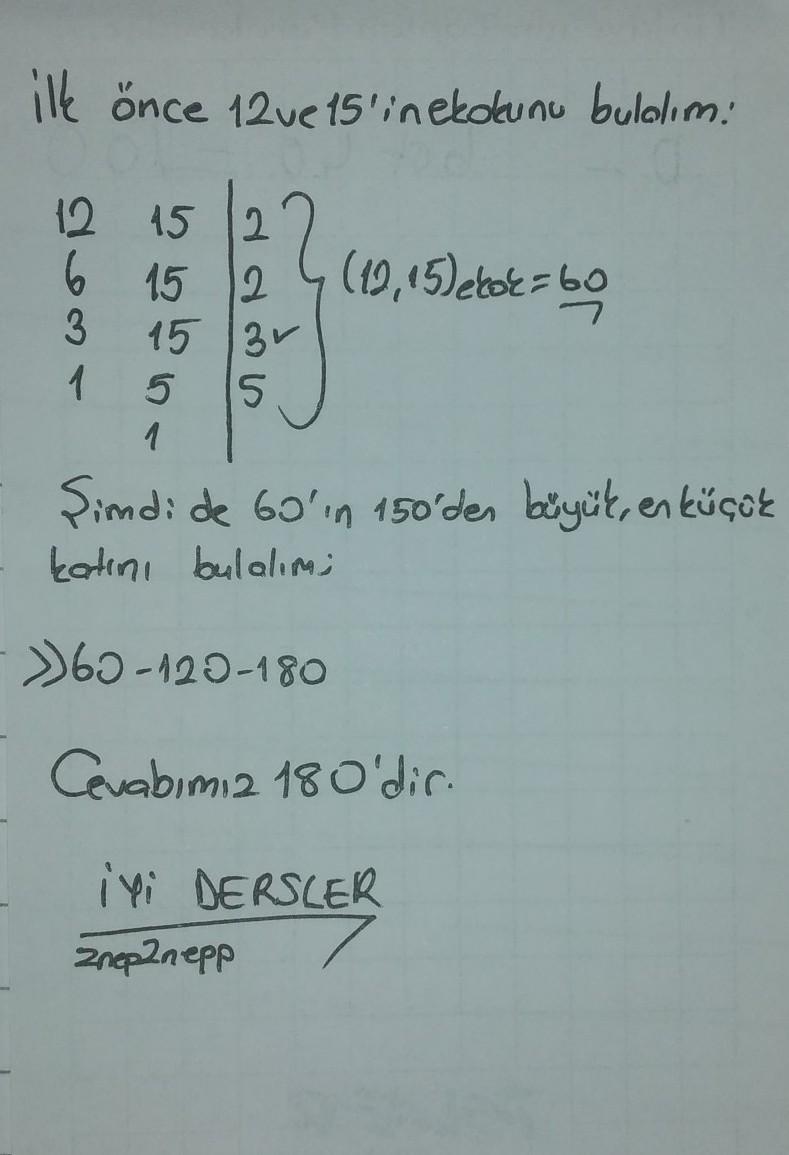 İlk önce 12 ve 15'in ekokunu bulalım:
12 15 | 2
6 15 | 2
3 15 | 3 ✓
1 5 | 5
1
(12,15)ekok = 60
Şimdi de 60'ın 150'den büyük, en küçük
katını bulalım;
>>60-120-180
Cevabımız 180'dir.
İYİ DERSLER
znep2nepp